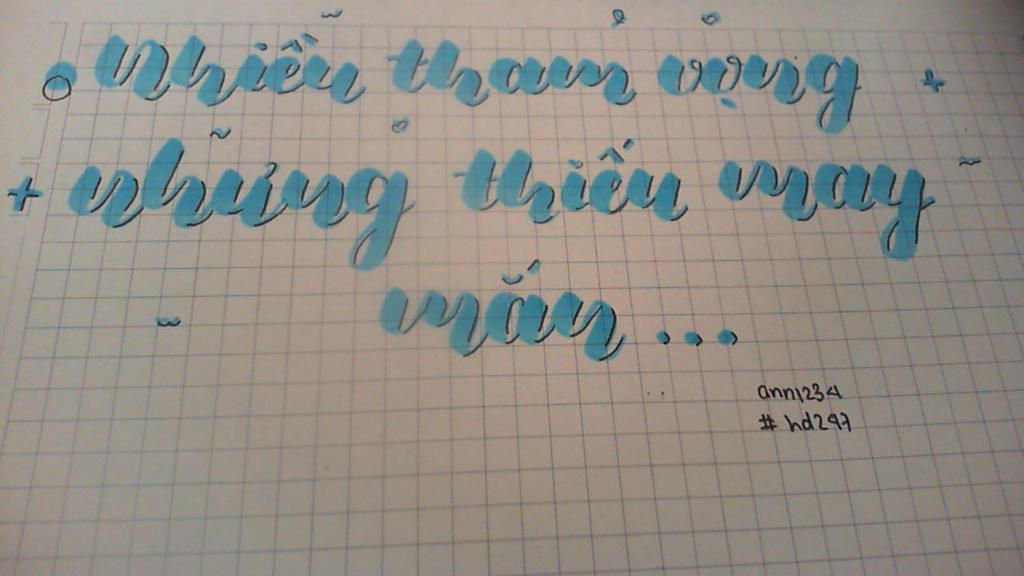 nhiều tham vọng
nhưng thiếu may
mắn ...
ann1234
# hd247